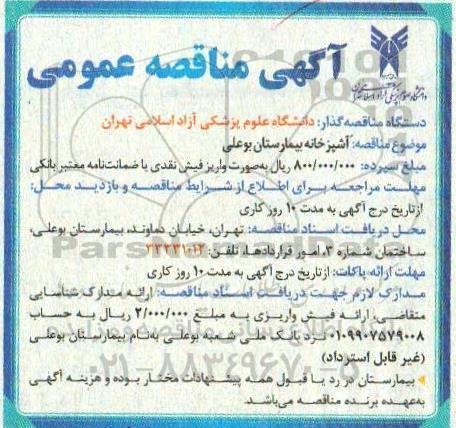 آگهی مناقصه عمومی
دانشگاه علوم پزشکی آزاد اسلامی تهران
دستگاه مناقصه گذار: دانشگاه علوم پزشکی آزاد اسلامی تهران
موضوع مناقصه: آشپزخانه بیمارستان بوعلی
مبلغ سپرده: ۸۰۰/۰۰۰/۰۰۰ ریال به‌صورت واریز فیش نقدی یا ضمانت‌نامه معتبر بانکی
مهلت مراجعه برای اطلاع از شرایط مناقصه و بازدید محل:
از تاریخ درج آگهی به مدت ۱۰ روز کاری
محل دریافت اسناد مناقصه: تهران، خیابان دماوند، بیمارستان بوعلی،
ساختمان شماره ۳، امور قراردادها، تلفن: ۳۳۳۳۱۰۱۲
مهلت ارائه پاکات: از تاریخ درج آگهی به مدت ۱۰ روز کاری
مدارک لازم جهت دریافت اسناد مناقصه: ارائه مدارک شناسایی
متقاضی، ارائه فیش واریزی به مبلغ ۲/۰۰۰/۰۰۰ ریال به حساب
۰۱۰۹۹۰۷۵۷۹۰۰۸ نزد بانک ملی شعبه بوعلی به‌نام بیمارستان بوعلی
(غیر قابل استرداد)
بیمارستان در رد یا قبول همه پیشنهادات مختار بوده و هزینه آگهی
به‌عهده برنده مناقصه می‌باشد.
۰۲۱-۸۸۳۴۹۶۷۰-۵